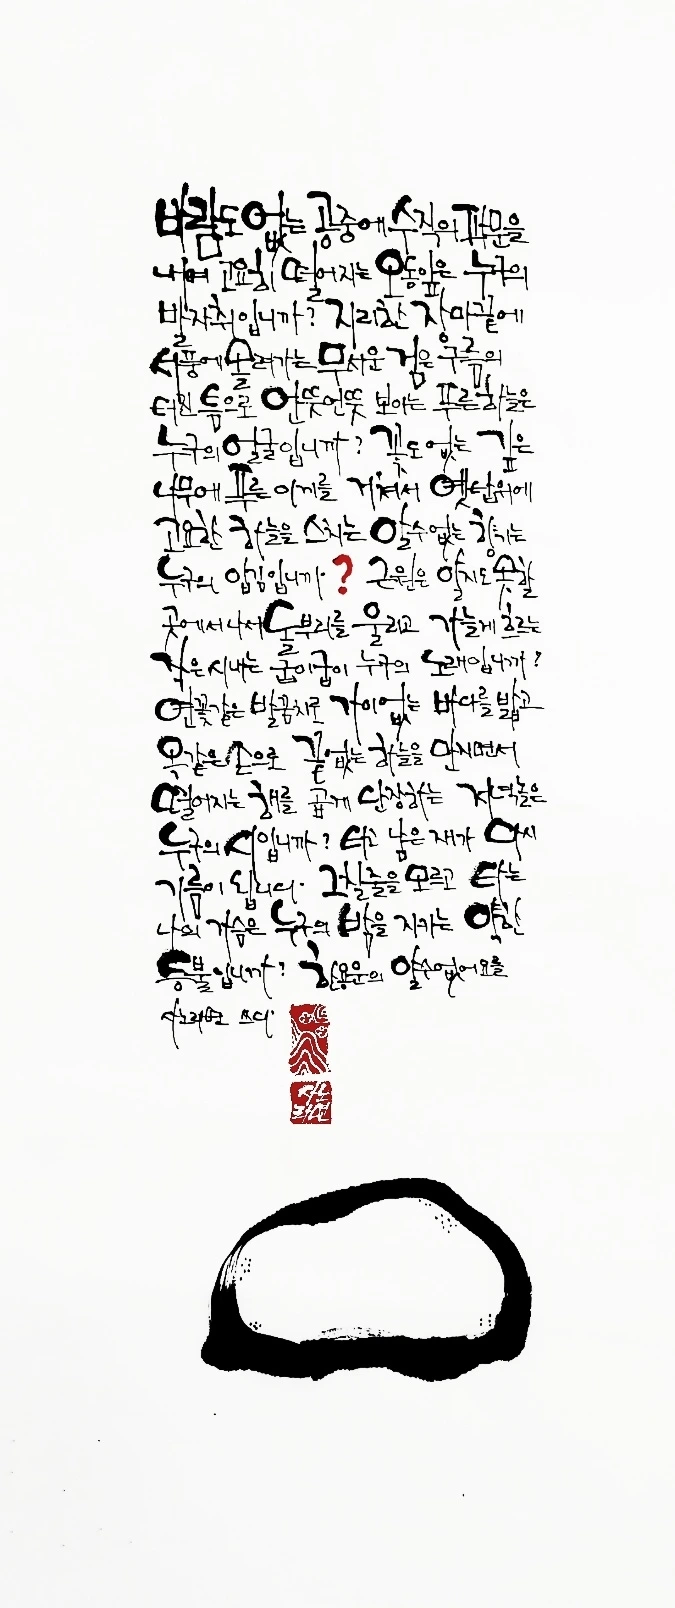 바람도 없는 공중에 수직의 파문을
내며 고요히 떨어지는 오동잎은 누구의
발자취입니까? 지리한 장마끝에
서풍에 몰려가는 무서운 검은 구름의
터진 틈으로 언뜻언뜻 보이는 푸른 하늘은
누구의 얼굴입니까? 꽃도 없는 깊은
나무에 푸른 이끼를 거쳐서 옛 탑위에
고요한 하늘을 스치는 알 수 없는 향기는
누구의 입김입니까? 근원은 알지도 못할
곳에서 나서 돌부리를 울리고 가늘게 흐르는
작은 시내는 굽이굽이 누구의 노래입니까?
연꽃같은 발꿈치로 가이없는 바다를 밟고
옥같은 손으로 끝없는 하늘을 만지면서
떨어지는 해를 곱게 단장하는 저녁놀은
누구의 시입니까? 타고 남은 재가 다시
기름이 됩니다. 그칠줄을 모르고 타는
나의 가슴은 누구의 밤을 지키는 약한
등불입니까? 한용운의 알 수 없어요를
쓰다.